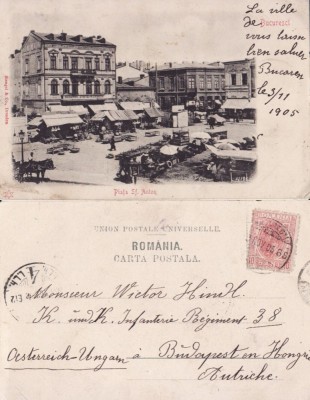 La ville
de Bucuresci
vous laisse
bien saluer
Bucarest
le 3/11
1905
Piața Sf. Anton
UNION POSTALE UNIVERSELLE.
ROMÂNIA.
CARTA POSTALA.
Monsieur Victor Hindl.
K. und K. Infanterie Regiment 38
Oesterreich-Ungarn à Budapest en Hongrie
Autriche.